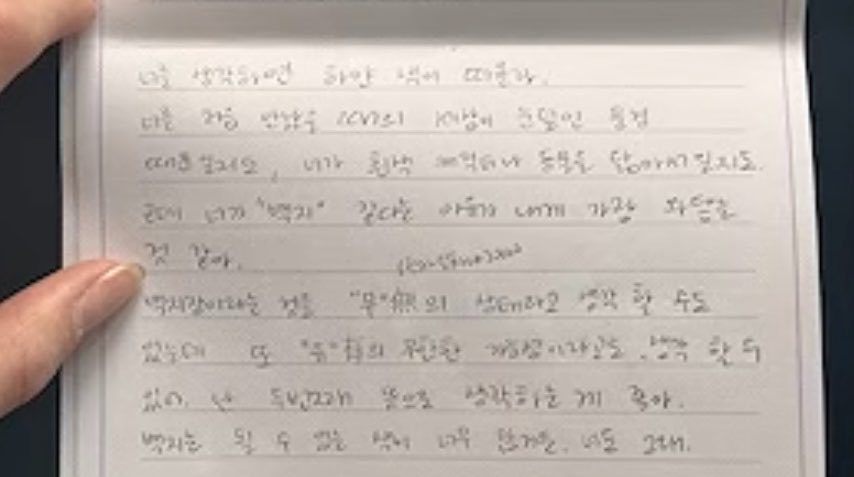 너를 생각하면 하얀 색이 떠올라.
너를 처음 만났을 때의 눈 덮인 풍경
때문일지도, 너가 흰색 동물을 닮아서 일지도.
근데 너가 "백지" 같다는 이유가 내게 가장 와닿는
것 같아.
백지장이라는 것을 "무"無의 상태라고 생각 할 수도
있는데 또 "유"有의 무한한 가능성이라고도 생각 할 수
있어. 난 두번째 뜻으로 생각하는 게 좋아.
백지는 될 수 있는 색이 너무 많거든. 너도 그래.